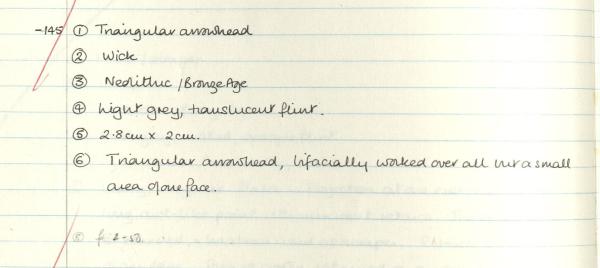 -145 ① Triangular arrowhead
② Wick
③ Neolithic / Bronze Age
④ Light grey, translucent flint.
⑤ 2.8cm x 2cm.
⑥ Triangular arrowhead, bifacially worked over all but a small
area of one face.